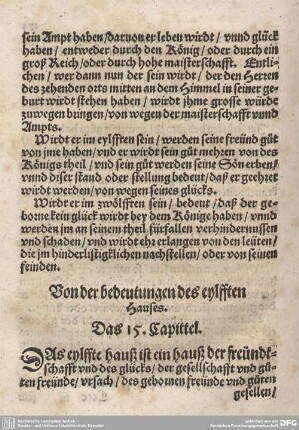 sein Ampt haben/daruon er leben wirdt/ vnnd glück
haben/ entweder durch den König/oder durch ein
groß Reich/oder durch hohe maisterschafft. Entli-
chen/ wer dann nun der sein wirdt/ der den Herren
des zehenden orts mitten an dem Himmel in seiner ge-
burt wirdt stehen haben/ wirdt jhme grosse würde
zuwegen bringen/von wegen der maisterschafft vnnd
Ampts.
Wirdt er im eylfften sein/ werden seine freünd güt
von jme haben/vnd er wirdt sein güt mehren von des
Königs theil/ vnd sein güt werden seine Sön erben/
vnnd diser stand oder stellung bedeut/daß er geehret
wirdt werden/von wegen seines glücks.
Wirdt er im zwölfften sein/ bedeut/ daß der ge-
borne kein glück wirdt bey dem Könige haben/ vnnd
werden jm an seinem theil fürfallen verhindernussen
vnd schaden/ vnd wirdt ehr erlangen von den leüten/
die jm hinderlistigklichen nachstellen/ oder von seinen
feinden.
Von der bedeutungen des eylfften
Hauses.
Das 15. Capittel.
DAs eylffte hauß ist ein hauß der freündt-
schafft vnd des glücks/ der gesellschafft vnd gü-
ten freünde/ vrsach/ des gebornen freünde vnd güten
gesellen/